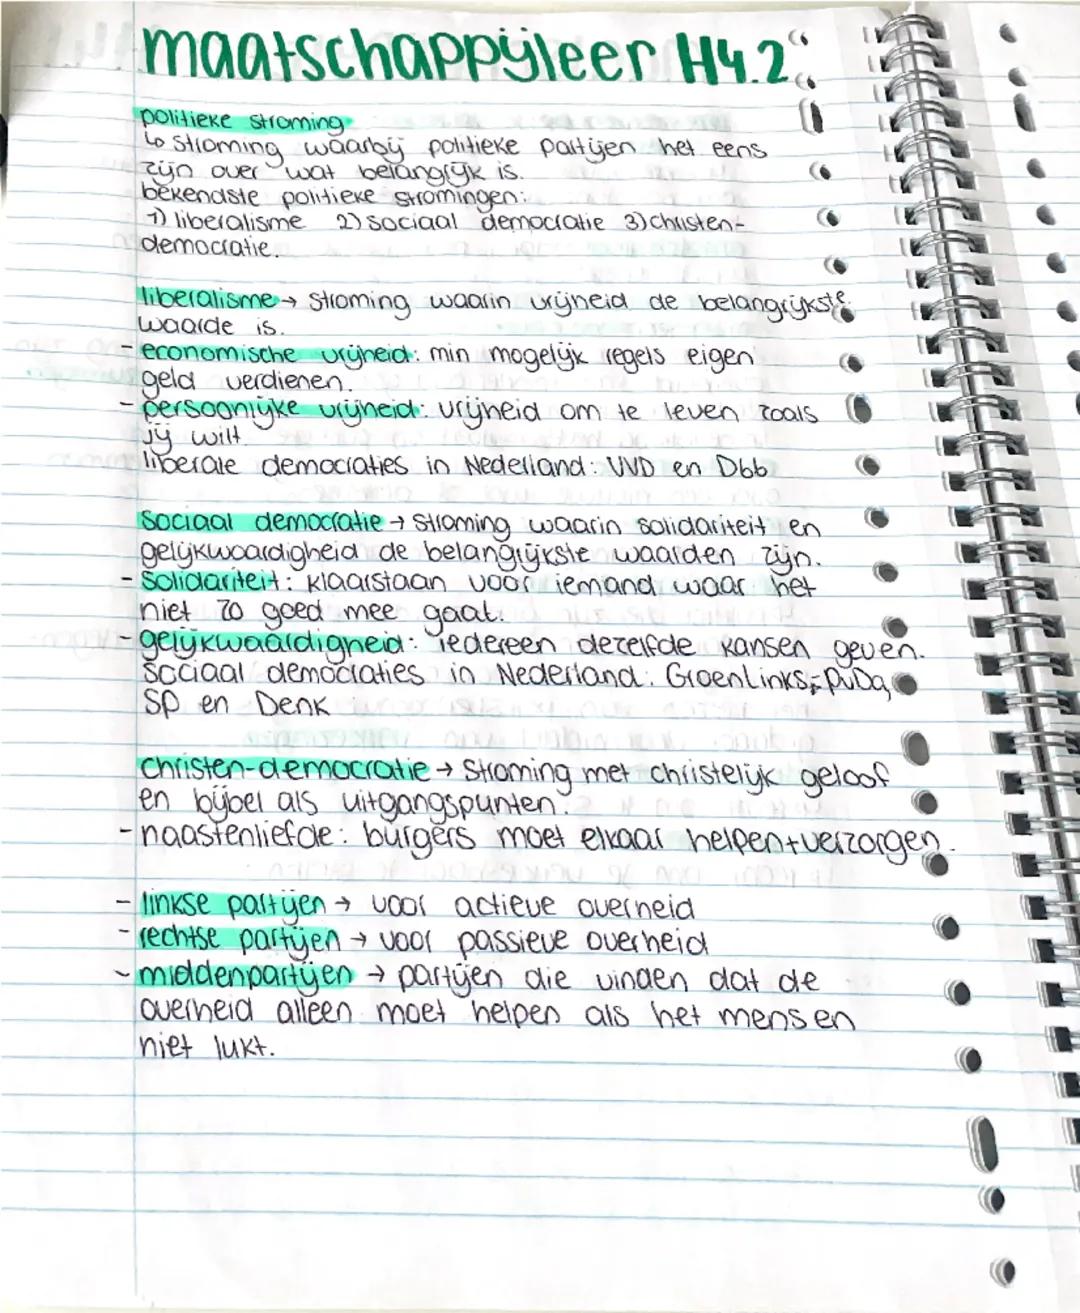 maatschappijleer H4.2
politieke stroming
↳ stroming waarbij politieke partijen het eens
zijn over wat belangrijk is.
bekendste politieke stromingen:
1) liberalisme 2) sociaal democratie 3) christen-
democratie.
liberalisme → stroming waarin vrijheid de belangrijkste
waarde is.
economische vrijheid: min mogelijk regels eigen
geld verdienen.
- persoonlijke vrijheid: vrijheid om te leven zoals
jij wilt.
liberale democraties in Nederland: VVD en D66
Sociaal democratie → stroming waarin solidariteit en
gelijkwaardigheid de belangrijkste waarden zijn.
- Solidariteit: klaarstaan voor iemand waar het
niet zo goed mee gaat.
- gelijkwaardigheid: iedereen dezelfde kansen geven.
Sociaal democraties in Nederland: GroenLinks, PvDa,
SP en Denk
christen-democratie → stroming met christelijk geloof
en bijbel als uitgangspunten.
- naastenliefde: burgers moet elkaar helpen+verzorgen.
- linkse partijen → voor actieve overheid
- rechtse partijen → voor passieve overheid
- middenpartijen → partijen die vinden dat de
overheid alleen moet helpen als het mensen
niet lukt.